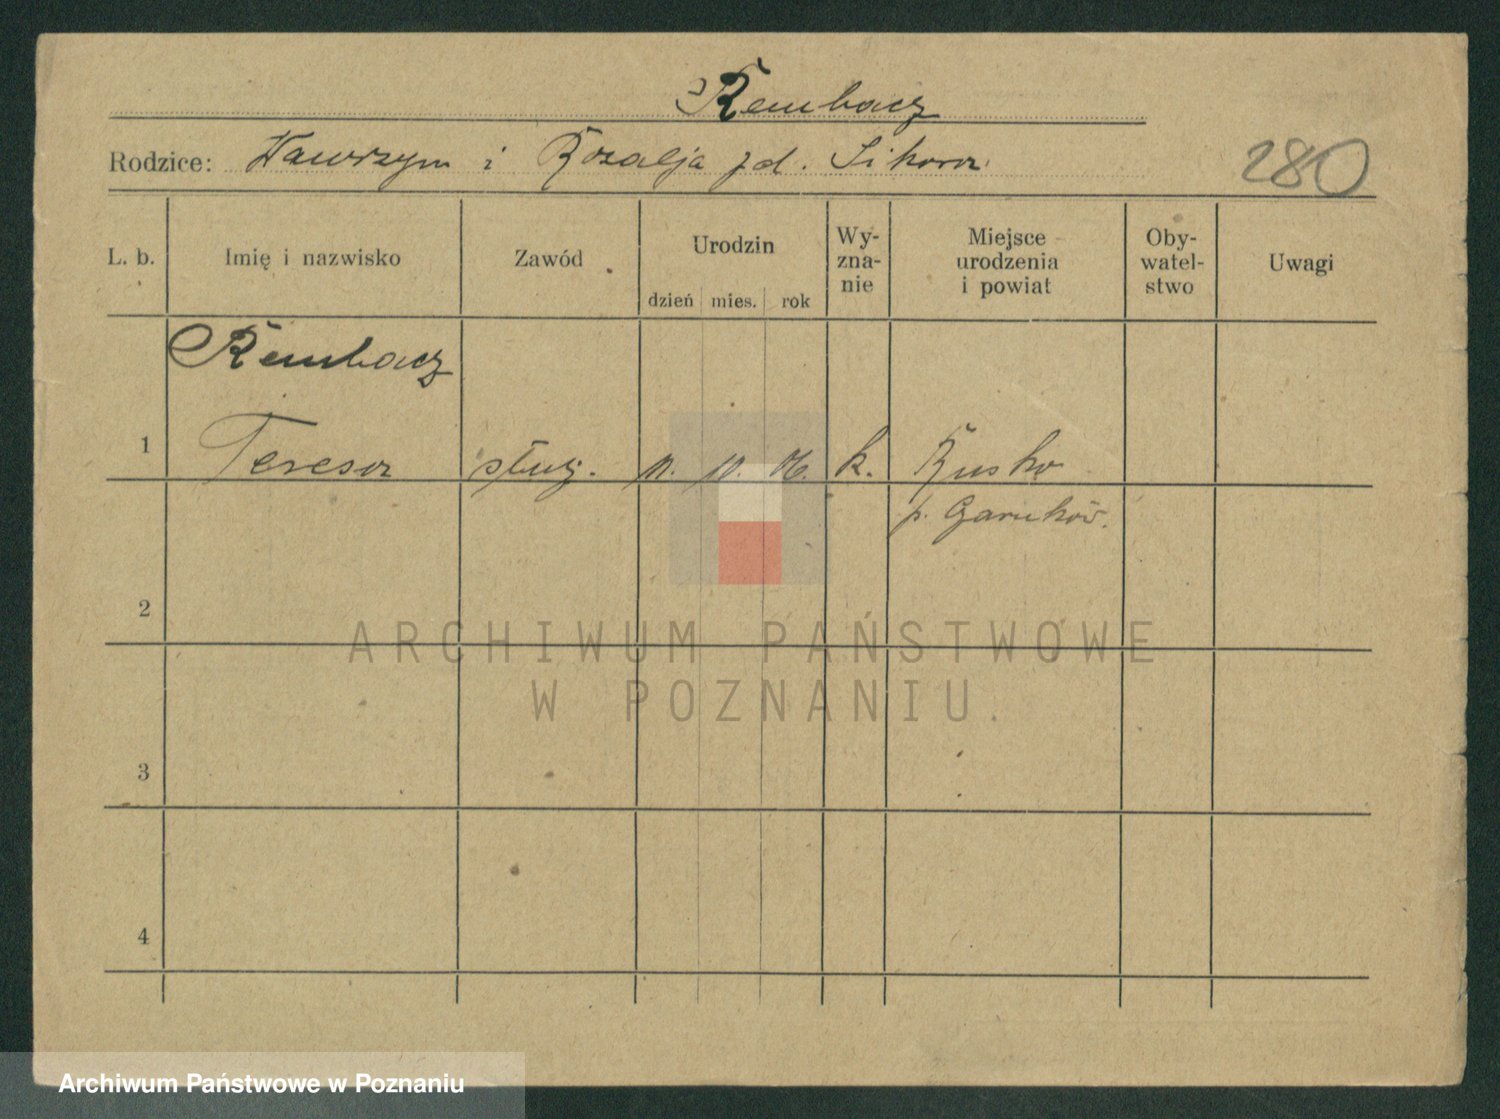 Rembacz
Rodzice: Wawrzyn i Rozalja zd. Sikora
280
L. b. Imię i nazwisko Zawód Urodzin dzień mies. rok Wy-zna-nie Miejsce urodzenia i powiat Oby-watel-stwo Uwagi
Rembacz
1 Teresa służ. 06. k. Rusko
p.
2
ARCHIWUM PAŃSTWOWE
W POZNANIU.
3
4
Archiwum Państwowe w Poznaniu